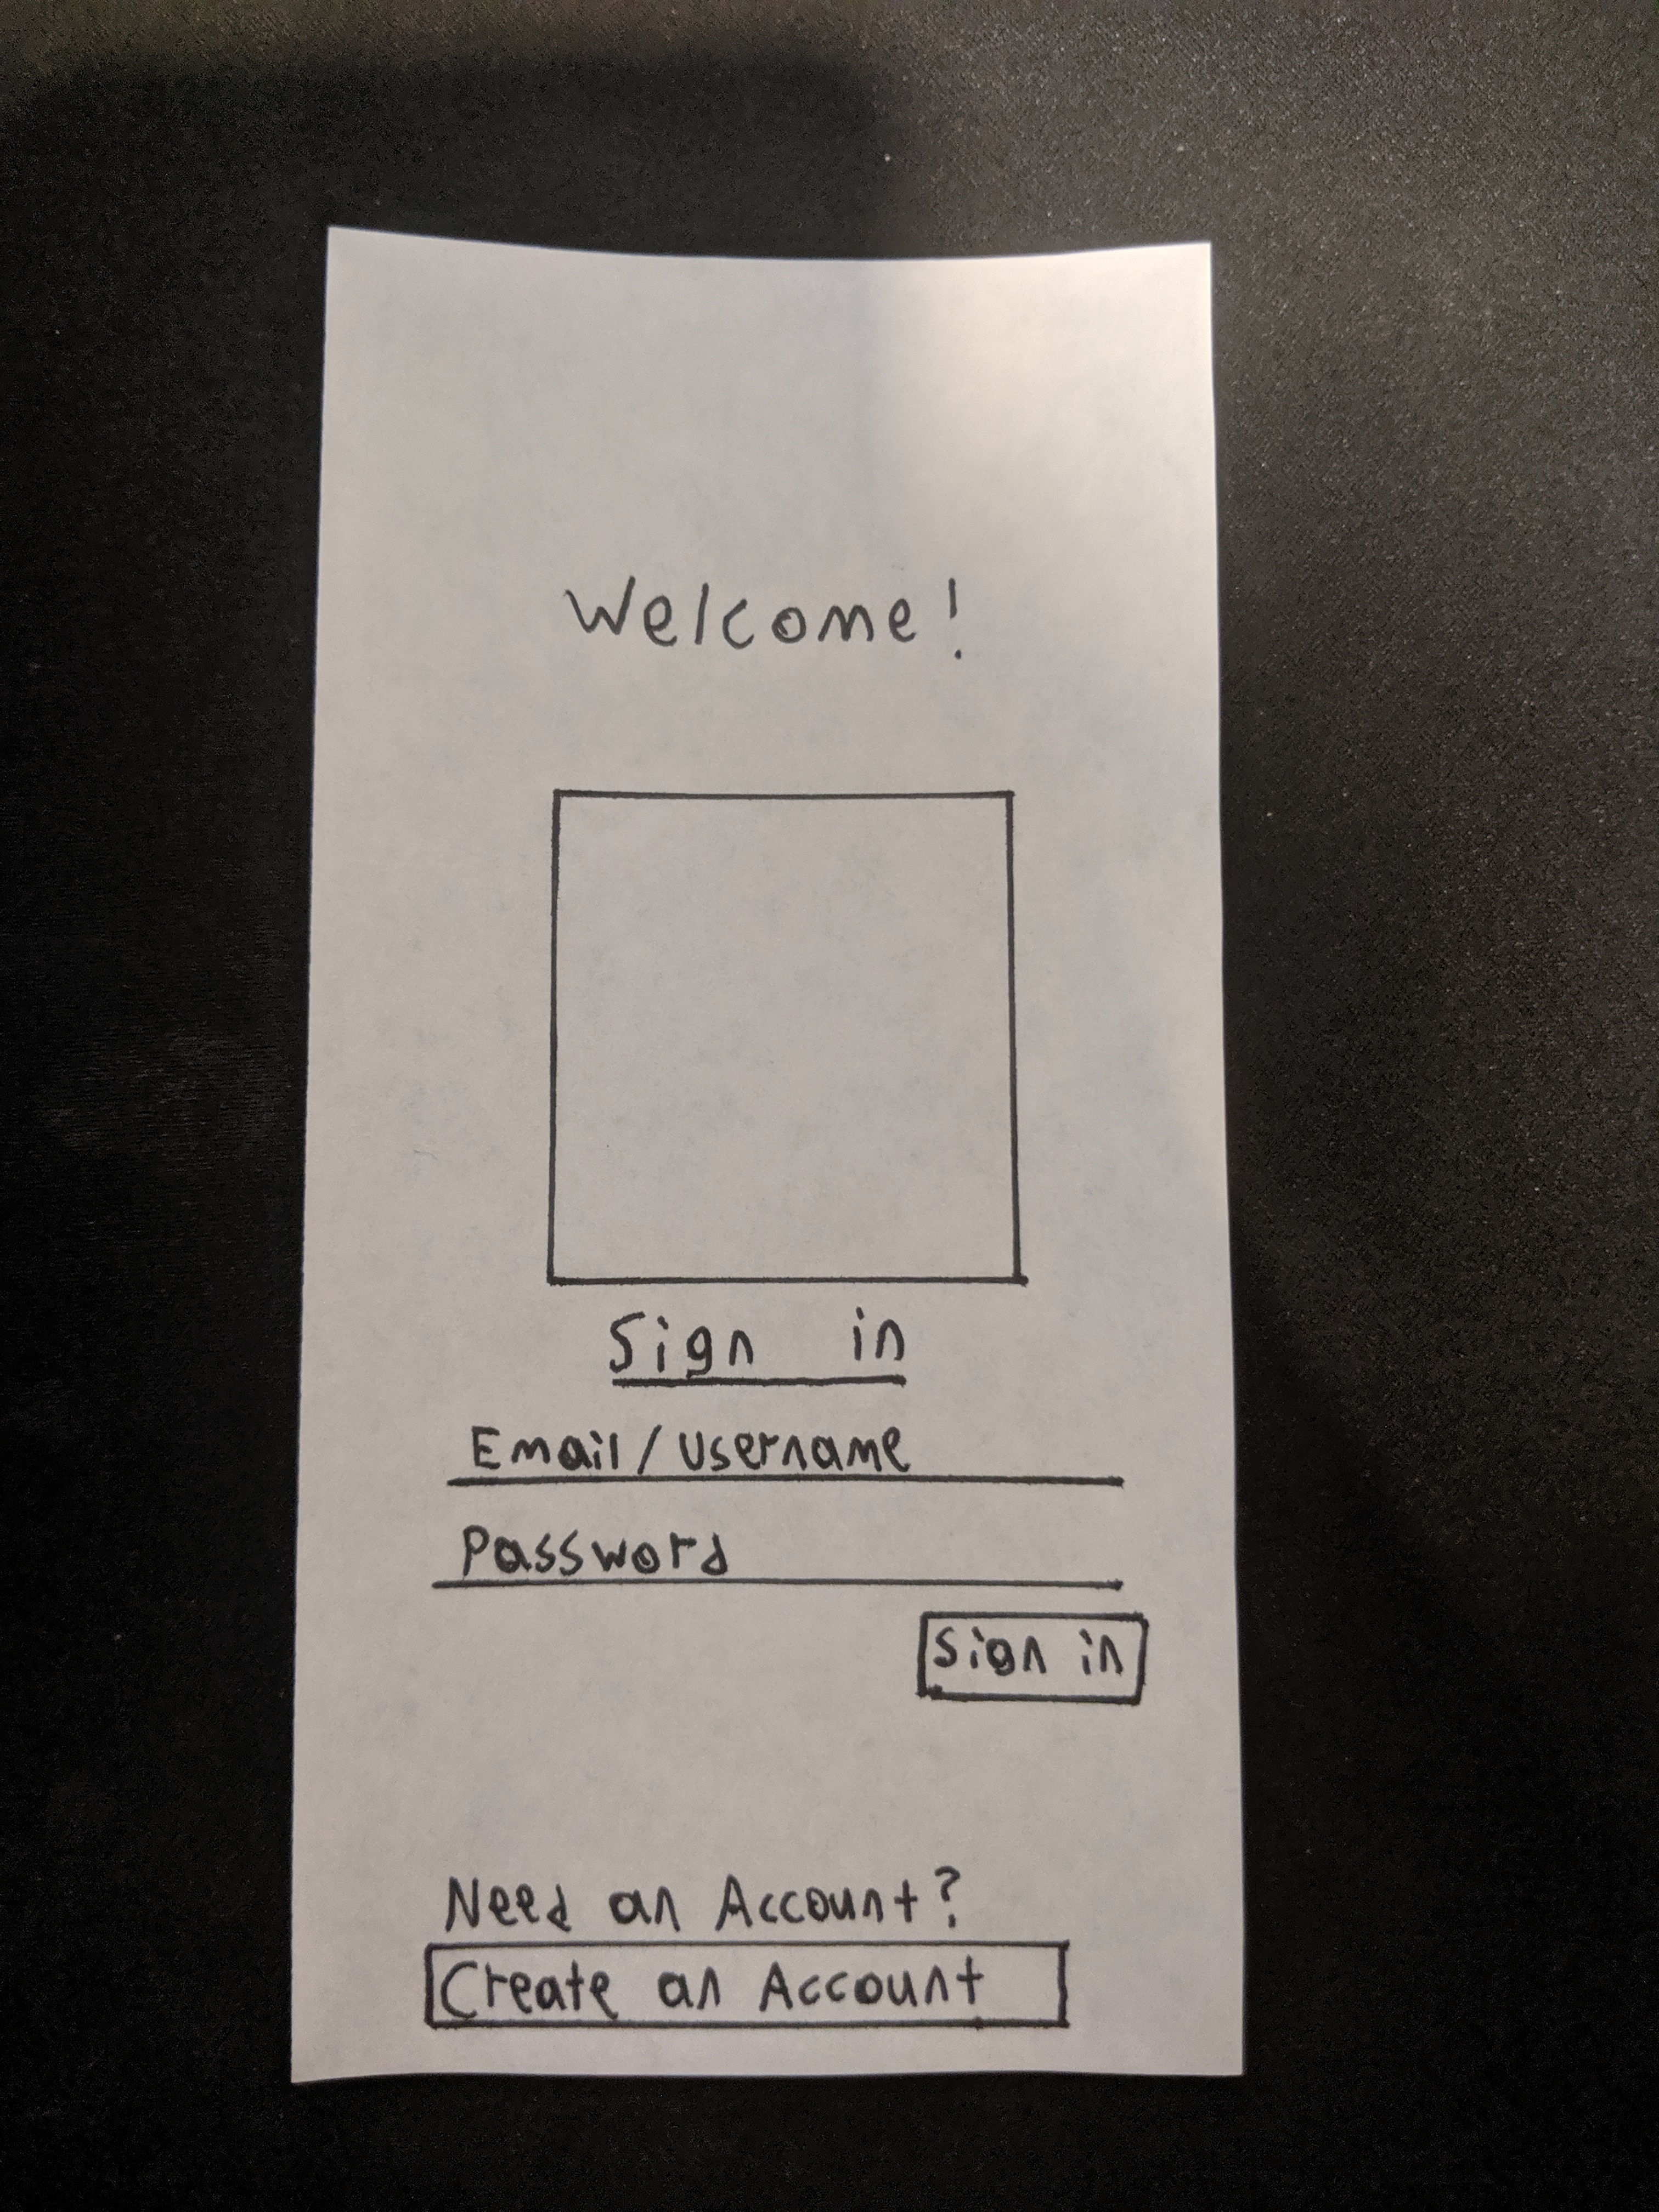 Welcome!
Sign in
Email/Username
Password
Sign in
Need an Account?
Create an Account